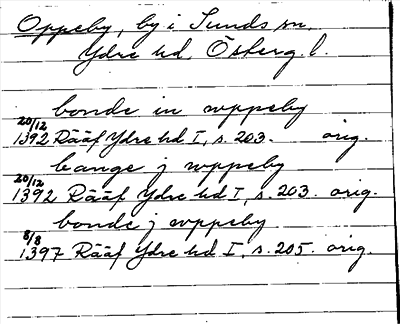 Oppeby, by i Sunds sn.
Ydre hd, Österg. l.
bonde in wppeby
20/12
1392 Rääf Ydre hd I, s. 203. orig.
bange j wppeby
20/12
1392 Rääf Ydre hd I, s. 203. orig.
bonde j wppeby
8/8
1397 Rääf Ydre hd I, s. 205. orig.